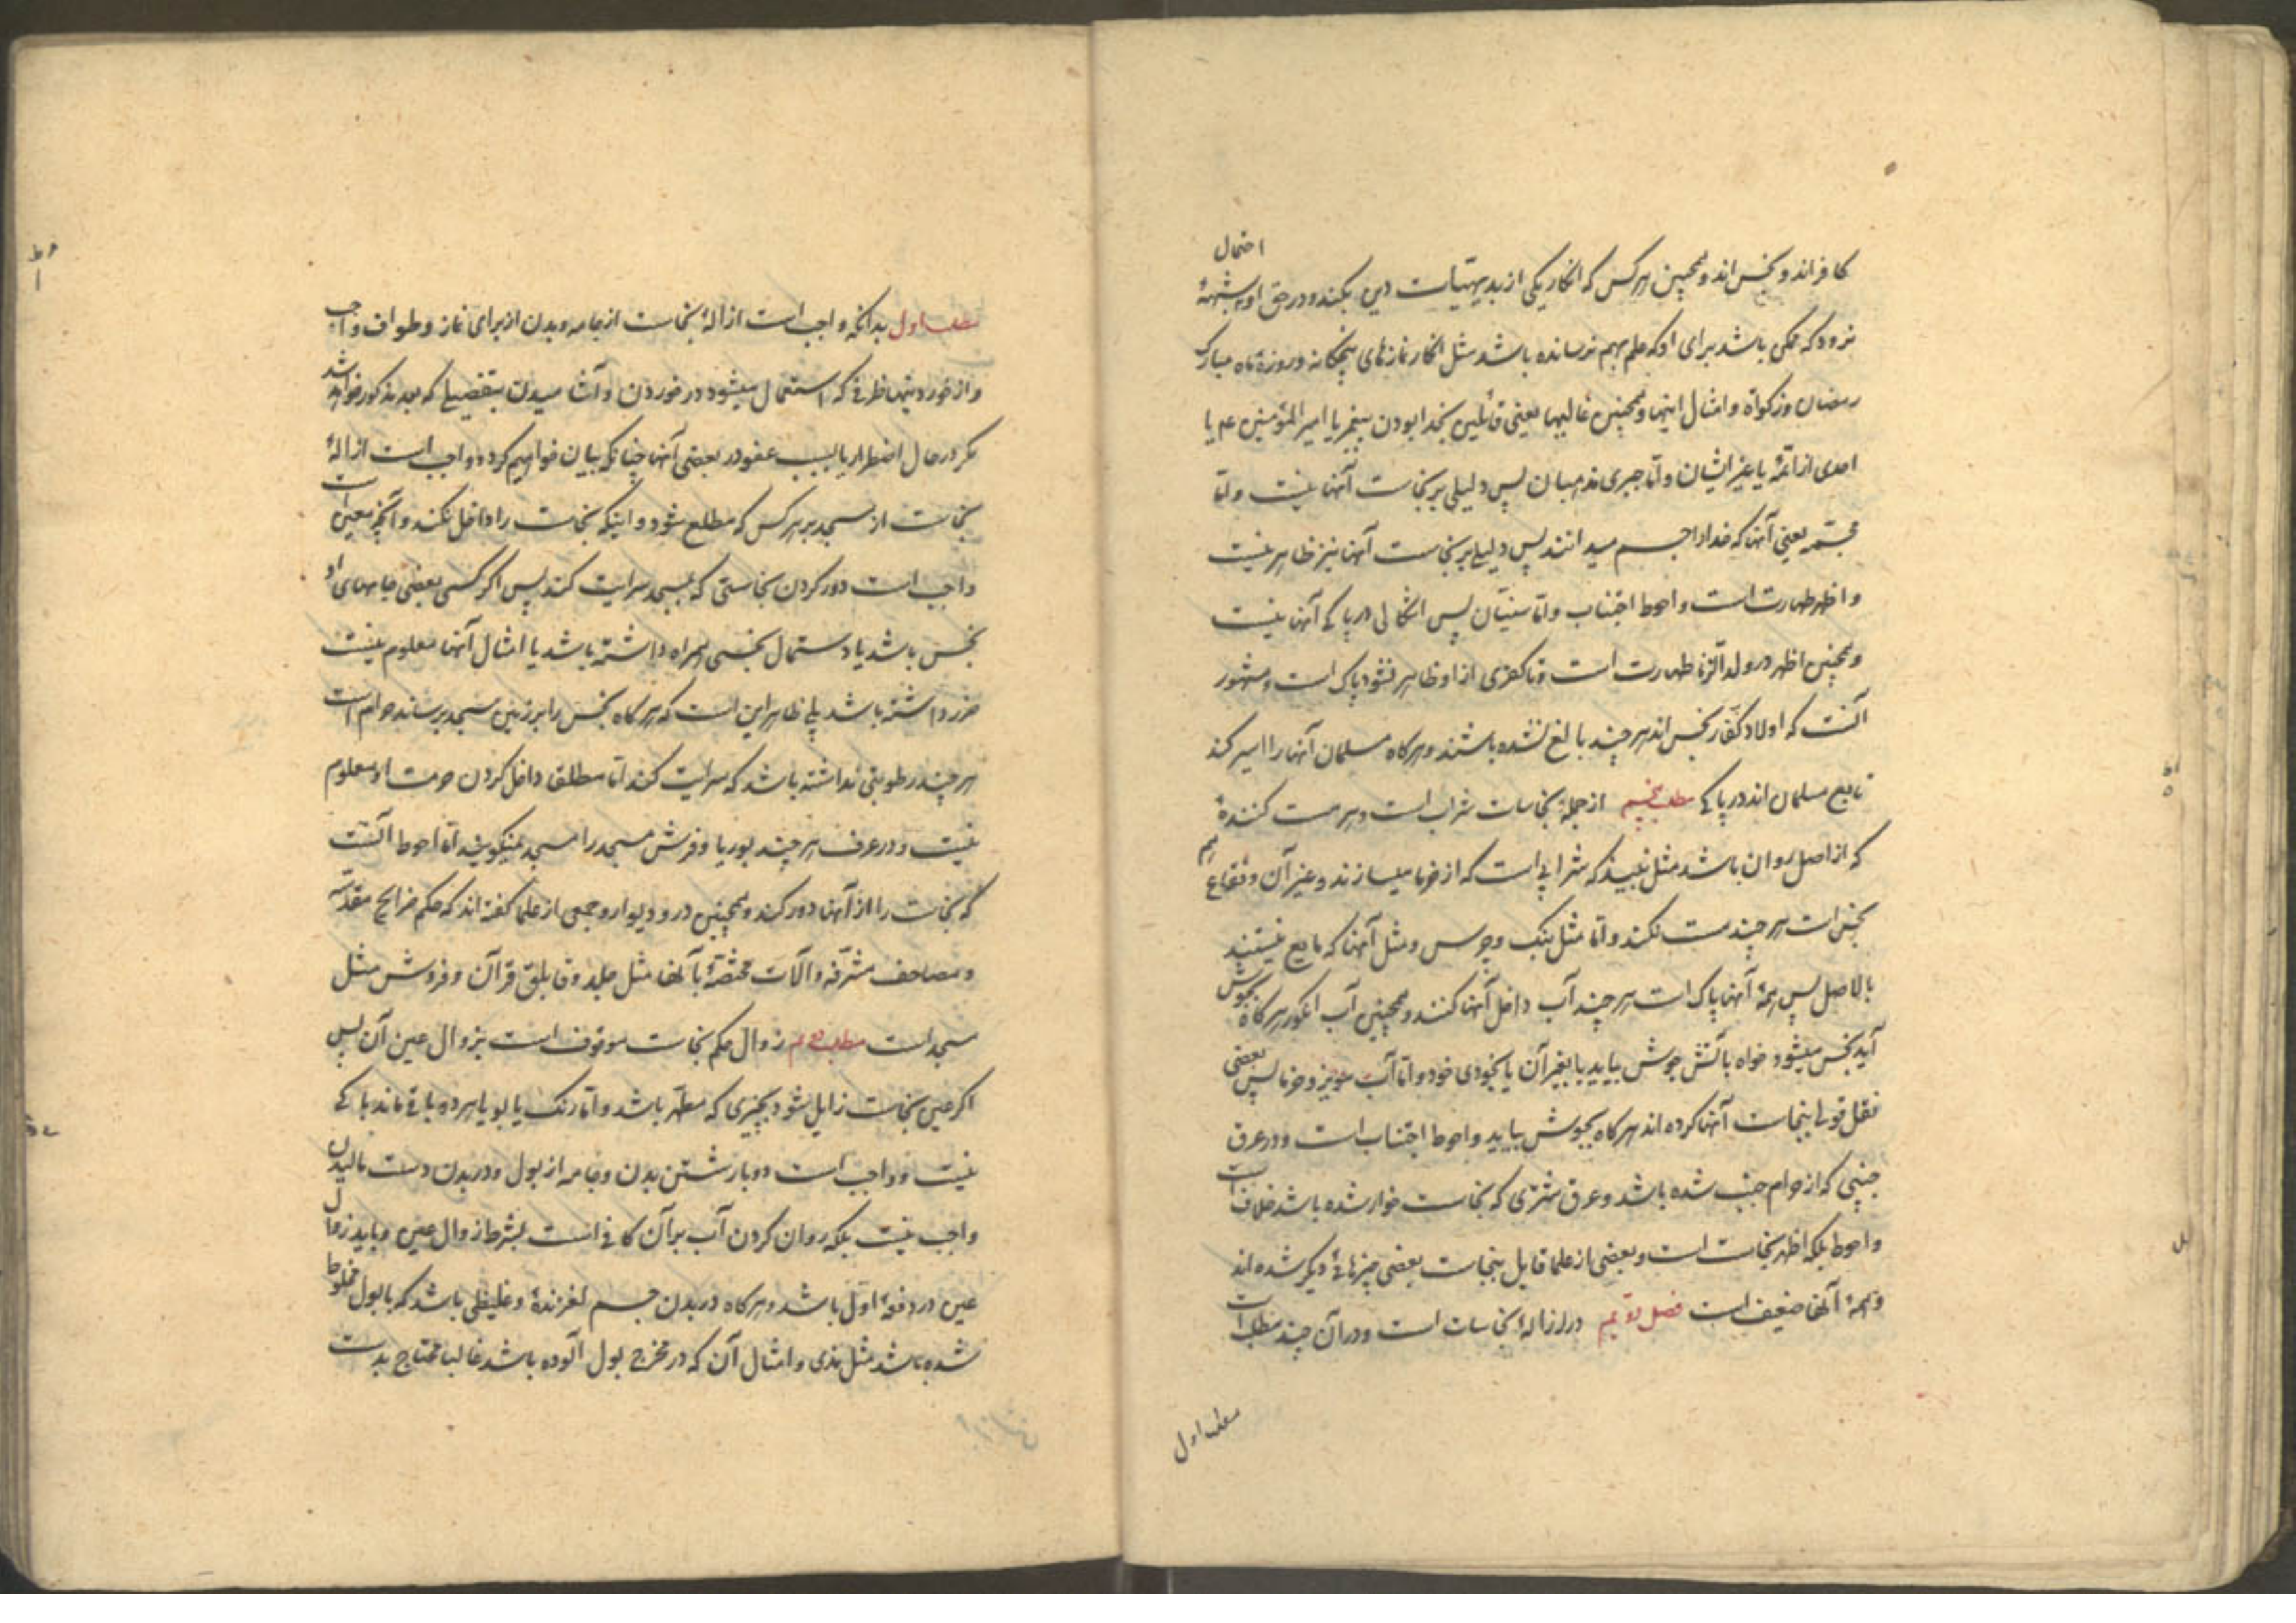 کافراند و نجس‌اند و همچنین هر کس که انکار یکی از بدیهیات دین بکند و در حق او احتمال شبههٔ
نرود که ممکن باشد برای او که علم بهم نرسانده باشد مثل انکار نمازهای پنجگانه و روزهٔ ماه مبارک
رمضان و زکوٰة و امثال اینها و همچنین غالیها یعنی قائلین بخدا بودن پیغمبر یا امیر المؤمنین عم یا
احدی از ائمه یا غیر ایشان و اما جبری مذهبان پس دلیلی بر نجاست آنها نیست و اما
مجسّمه یعنی آنها که خدا را جسم میدانند پس دلیلی بر نجاست آنها نیز ظاهر نیست
و اظهر طهارت است و احوط اجتناب و اما سنیّان پس اشکالی در پاکی آنها نیست
و همچنین اظهر در ولد الزنا طهارت است و تا کفری از او ظاهر نشود پاک است و مشهور
آنست که اولاد کفّار نجس‌اند هر چند بالغ نشده باشند و هرگاه مسلمان آنها را اسیر کند
تابع مسلمان‌اند در پاکی مطلب پنجم از جملهٔ نجاسات شراب است و هر مست کنندهٔ
که از اصل روان باشد مثل نبیذ که شرابی است که از خرما میسازند و غیر آن و فقاع هم
نجس است هر چند مست نکند و اما مثل بنک و چرس و مثل آنها که مایع نیستند
بالاصل پس همهٔ آنها پاک است هر چند آب داخل آنها کنند و همچنین آب انکور هرگاه بجوش
آید نجس میشود خواه بآتش جوش بیاید یا بغیر آن یا بخودی خود و اما آب مویز و خرما پس بعضی
نقل قولی بنجاست آنها کرده‌اند هرگاه بجوش بیاید و احوط اجتناب است و در عرق
جنبی که از حرام جنب شده باشد و عرق شتری که نجاست خوار شده باشد خلاف است
و احوط بلکه اظهر نجاست است و بعضی از علما قایل بنجاست بعضی چیزهای دیگر شده‌اند
و همهٔ آنها ضعیف است فصل دویم در ازالهٔ نجاسات است و در آن چند مطلب است
مطلب اول
مطلب اول بدانکه واجب است ازالهٔ نجاست از جامه و بدن از برای نماز و طواف واجب
و از خوردنیها و ظرفی که استعمال میشود در خوردن و آشامیدن بتفصیلی که بعد مذکور خواهد شد
مکر در حال اضطرار یا بسبب عفو در بعضی آنها چنانکه بیان خواهیم کرد و واجب است ازالهٔ
نجاست از مسجد بر هر کس که مطلع شود و اینکه نجاست را داخل نکند و آنچه معین است
واجب است دور کردن نجاستی که بمسجد سرایت کند پس اکر کسی بعضی جامهای او
نجس باشد یا دستمال نجسی همراه داشته باشد یا امثال آنها معلوم نیست
ضرر داشته باشد بلی ظاهر این است که هرگاه نجس را بر زمین مسجد برساند حرام است
هر چند رطوبتی نداشته باشد که سرایت کند اما مطلق داخل کردن حرمت او معلوم
نیست و در عرف هر چند بوریا و فرش مسجد را مسجد نمیکویند اما احوط آنست
که نجاست را از آنها دور کند و همچنین در و دیوار و جمعی از علما گفته‌اند که حکم ضرایح مقدّسه
و مصاحف مشرّفه و آلات مختصّهٔ بآنها مثل جلد و قابلق قرآن و فروش مثل
مسجد است مطلب دویم زوال حکم نجاست موقوف است بزوال عین آن پس
اکر عین نجاست زایل شود بچیزی که مطهّر باشد و اما رنک یا بو یا هر دو باقی ماند باکی
نیست و واجب است دو بار شستن بدن و جامه از بول و در بدن دست مالیدن
واجب نیست بلکه روان کردن آب بر آن کافی است بشرط زوال عین و باید زوال
عین در دفعهٔ اول باشد و هرگاه در بدن جسم لغزندهٔ و غلیظی باشد که با بول مخلوط
شده باشد مثل مذی و امثال آن که در مخرج بول آلوده باشد غالبا محتاج بدست